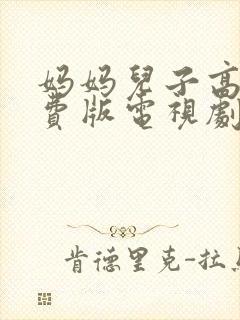 妈妈兒子高
費版電視劇
肯德里克-拉